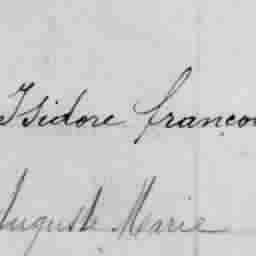 Isidore françois
Auguste Marie